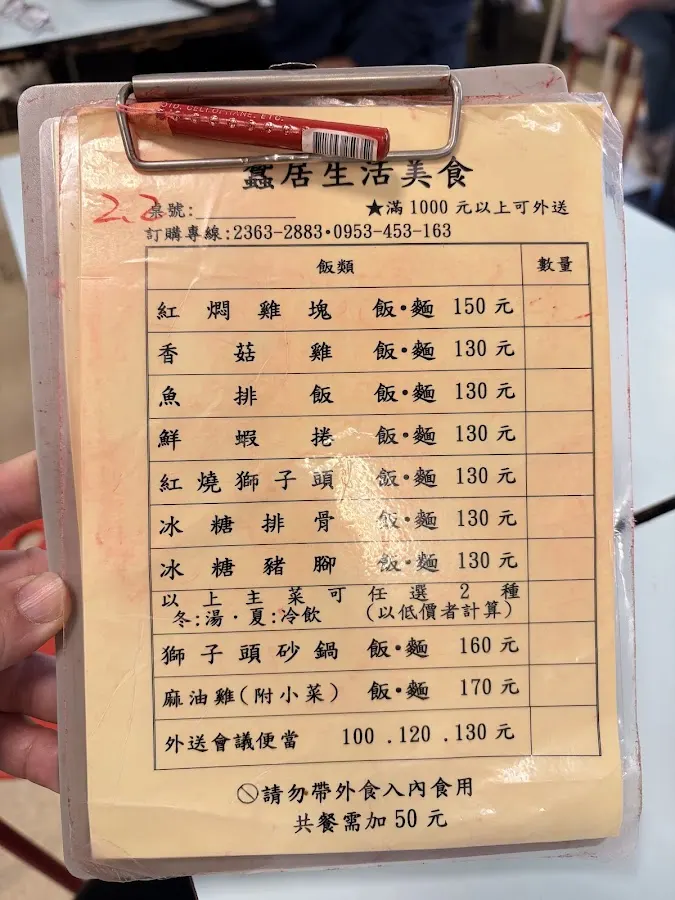 OTO, CELLOPHANE, ETC.
蠢居生活美食
2.2
桌號:
★滿 1000 元以上可外送
訂購專線:2363-2883•0953-453-163
飯類 數量
紅燜雞塊 飯•麵 150 元
香菇雞 飯•麵 130 元
魚排飯 飯•麵 130 元
鮮蝦捲 飯•麵 130 元
紅燒獅子頭 飯•麵 130 元
冰糖排骨 飯•麵 130 元
冰糖豬腳 飯•麵 130 元
以上主菜可任選2種
冬:湯•夏:冷飲 (以低價者計算)
獅子頭砂鍋 飯•麵 160 元
麻油雞(附小菜) 飯•麵 170 元
外送會議便當 100 .120 .130 元
請勿帶外食入內食用
共餐需加 50 元